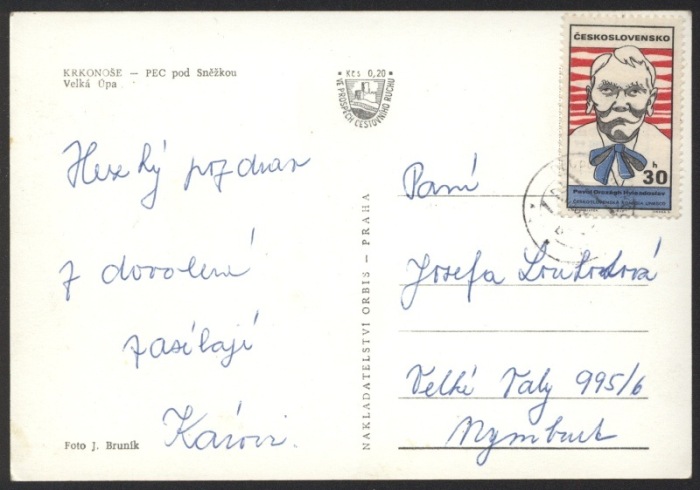 KRKONOŠE — PEC pod Sněžkou
Velká Úpa
Kčs 0,20
VE PROSPĚCH CESTOVNÍHO RUCHU
ČESKOSLOVENSKO
30 h
Pavol Országh Hviezdoslav
Hezký pozdrav
z dovolené
zasílají
Foto J. Bruník
NAKLADATELSTVÍ ORBIS — PRAHA
Paní
Josefa
Velké Valy 995/6
Nymburk